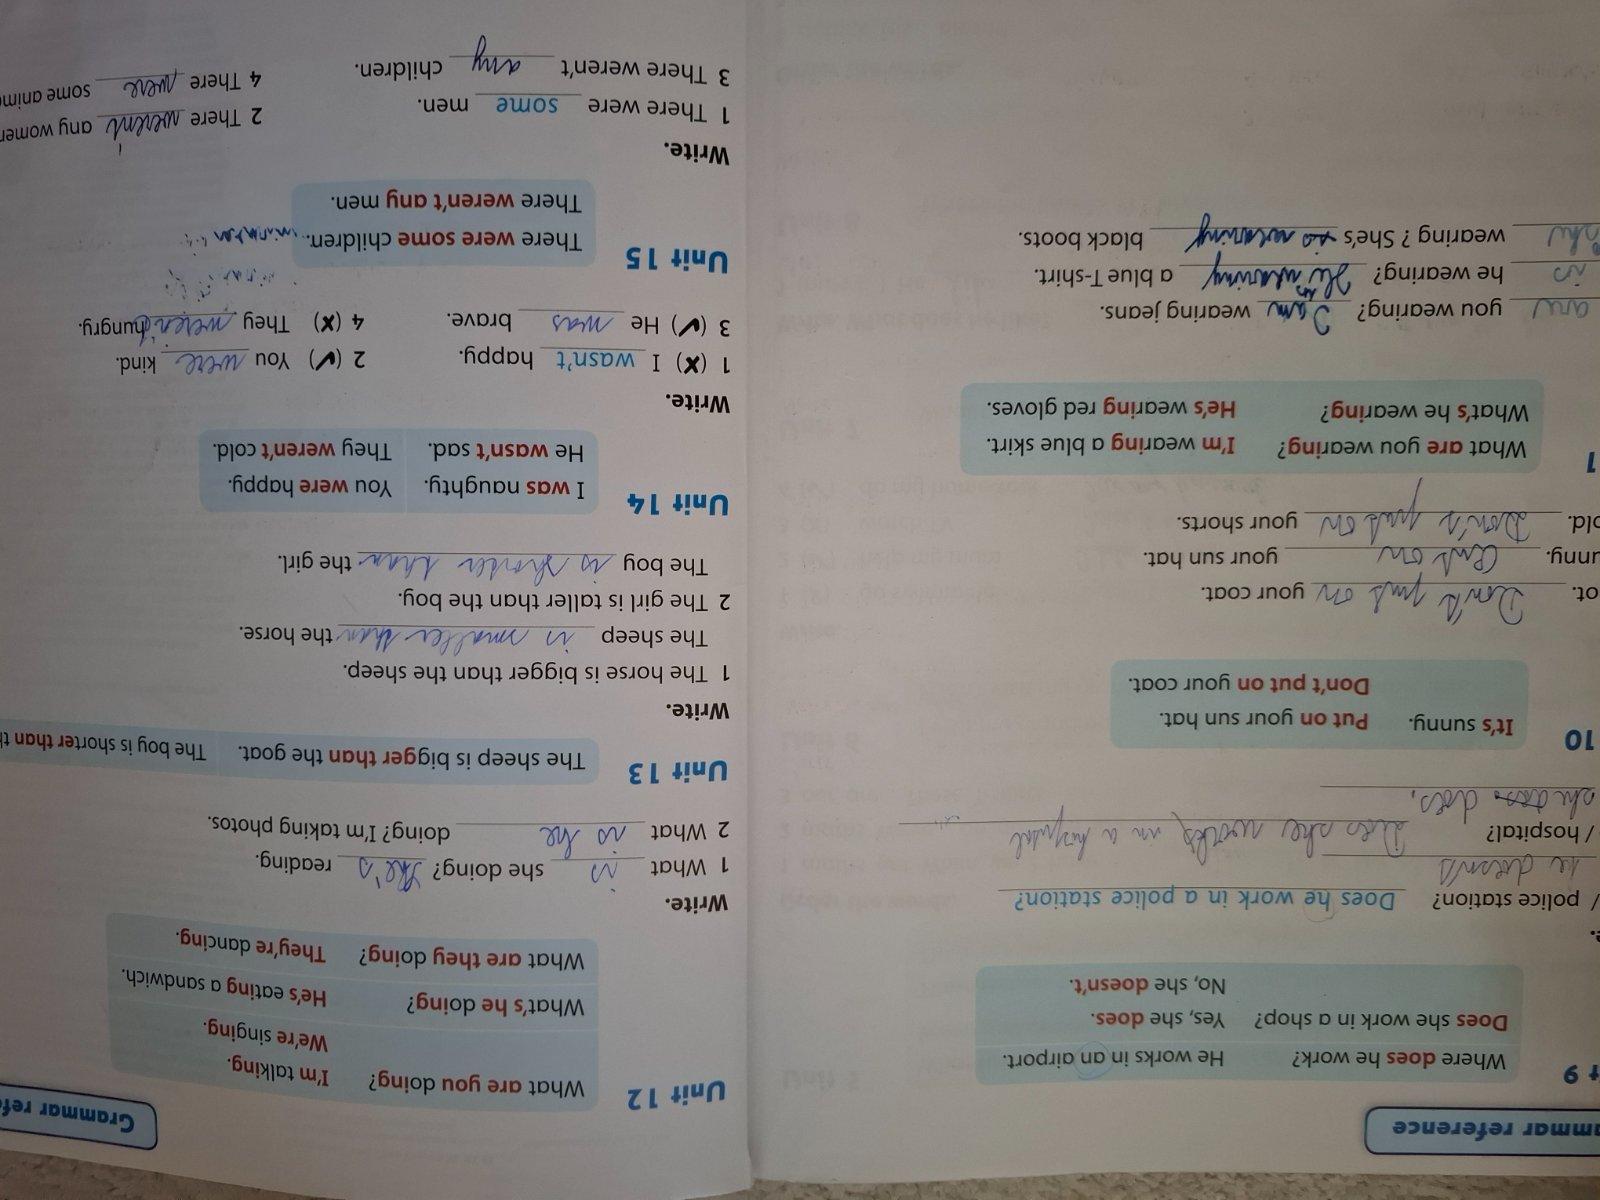 mmar reference
t 9
Where does he work? He works in an airport.
Does she work in a shop? Yes, she does.
No, she doesn't.
e.
/ police station? Does he work in a police station?
he doesn't
/ hospital? Does she works in a hospital
she does.
10
It's sunny. Put on your sun hat.
Don't put on your coat.
ot. Don't put on your coat.
unny. Put on your sun hat.
old. Don't put on your shorts.
1
What are you wearing? I'm wearing a blue skirt.
What's he wearing? He's wearing red gloves.
are you wearing? I am wearing jeans.
is he wearing? He is wearing a blue T-shirt.
she wearing? She's wearing black boots.
Grammar refe
Unit 12
What are you doing? I'm talking.
We're singing.
What's he doing? He's eating a sandwich.
What are they doing? They're dancing.
Write.
1 What is she doing? She's reading.
2 What is he doing? I'm taking photos.
Unit 13
The sheep is bigger than the goat. The boy is shorter than th
Write.
1 The horse is bigger than the sheep.
The sheep is smaller than the horse.
2 The girl is taller than the boy.
The boy is shorter than the girl.
Unit 14
I was naughty. You were happy.
He wasn't sad. They weren't cold.
Write.
1 (✗) I wasn't happy. 2 (✓) You were kind.
3 (✓) He was brave. 4 (✗) They weren't hungry.
Unit 15
There were some children.
There weren't any men.
Write.
1 There were some men. 2 There weren't any women
3 There weren't any children. 4 There were some anima